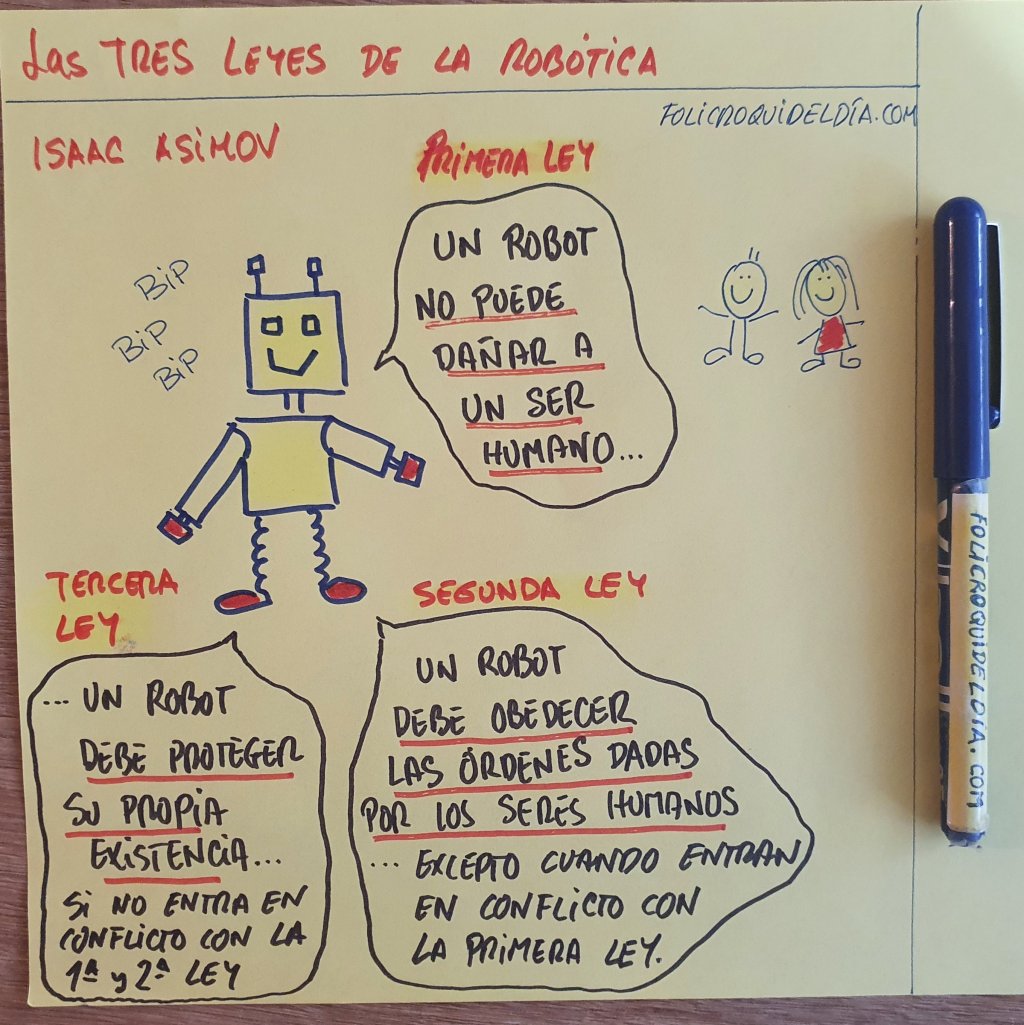 Las TRES LEYES DE LA ROBÓTICA
FOLICROQUIDELDÍA.COM
ISAAC ASIMOV
PRIMERA LEY
UN ROBOT
NO PUEDE
DAÑAR A
UN SER
HUMANO...
BIP
BIP
BIP
TERCERA
LEY
... UN ROBOT
DEBE PROTEGER
SU PROPIA
EXISTENCIA...
SI NO ENTRA EN
CONFLICTO CON LA
1ª y 2ª LEY
SEGUNDA LEY
UN ROBOT
DEBE OBEDECER
LAS ÓRDENES DADAS
POR LOS SERES HUMANOS
... EXCEPTO CUANDO ENTRAN
EN CONFLICTO CON
LA PRIMERA LEY.
FOLICROQUIDELDIA.COM